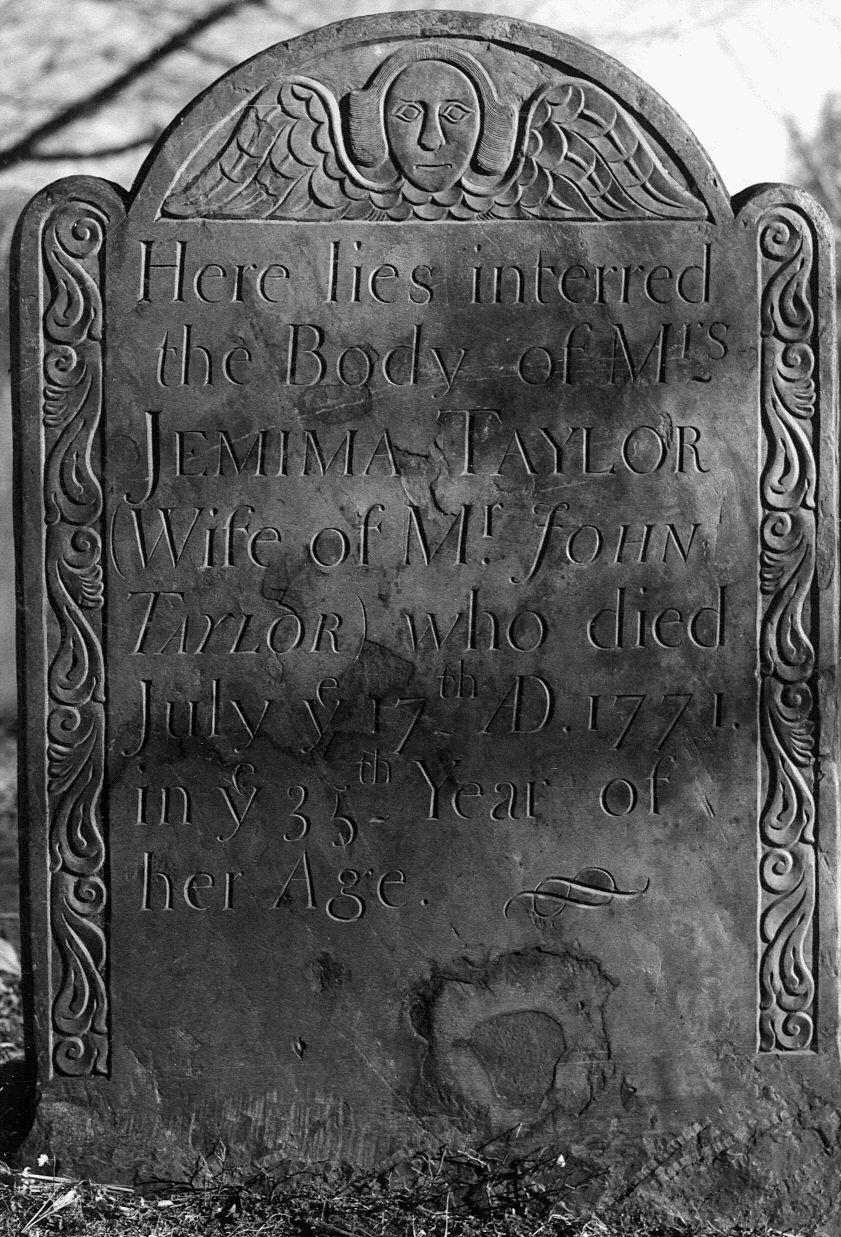 Here lies interred
the Body of Mrs
JEMIMA TAYLOR
(Wife of Mr. JOHN
TAYLOR) who died
July ye 17th AD. 1771.
in ye 35th Year of
her Age.